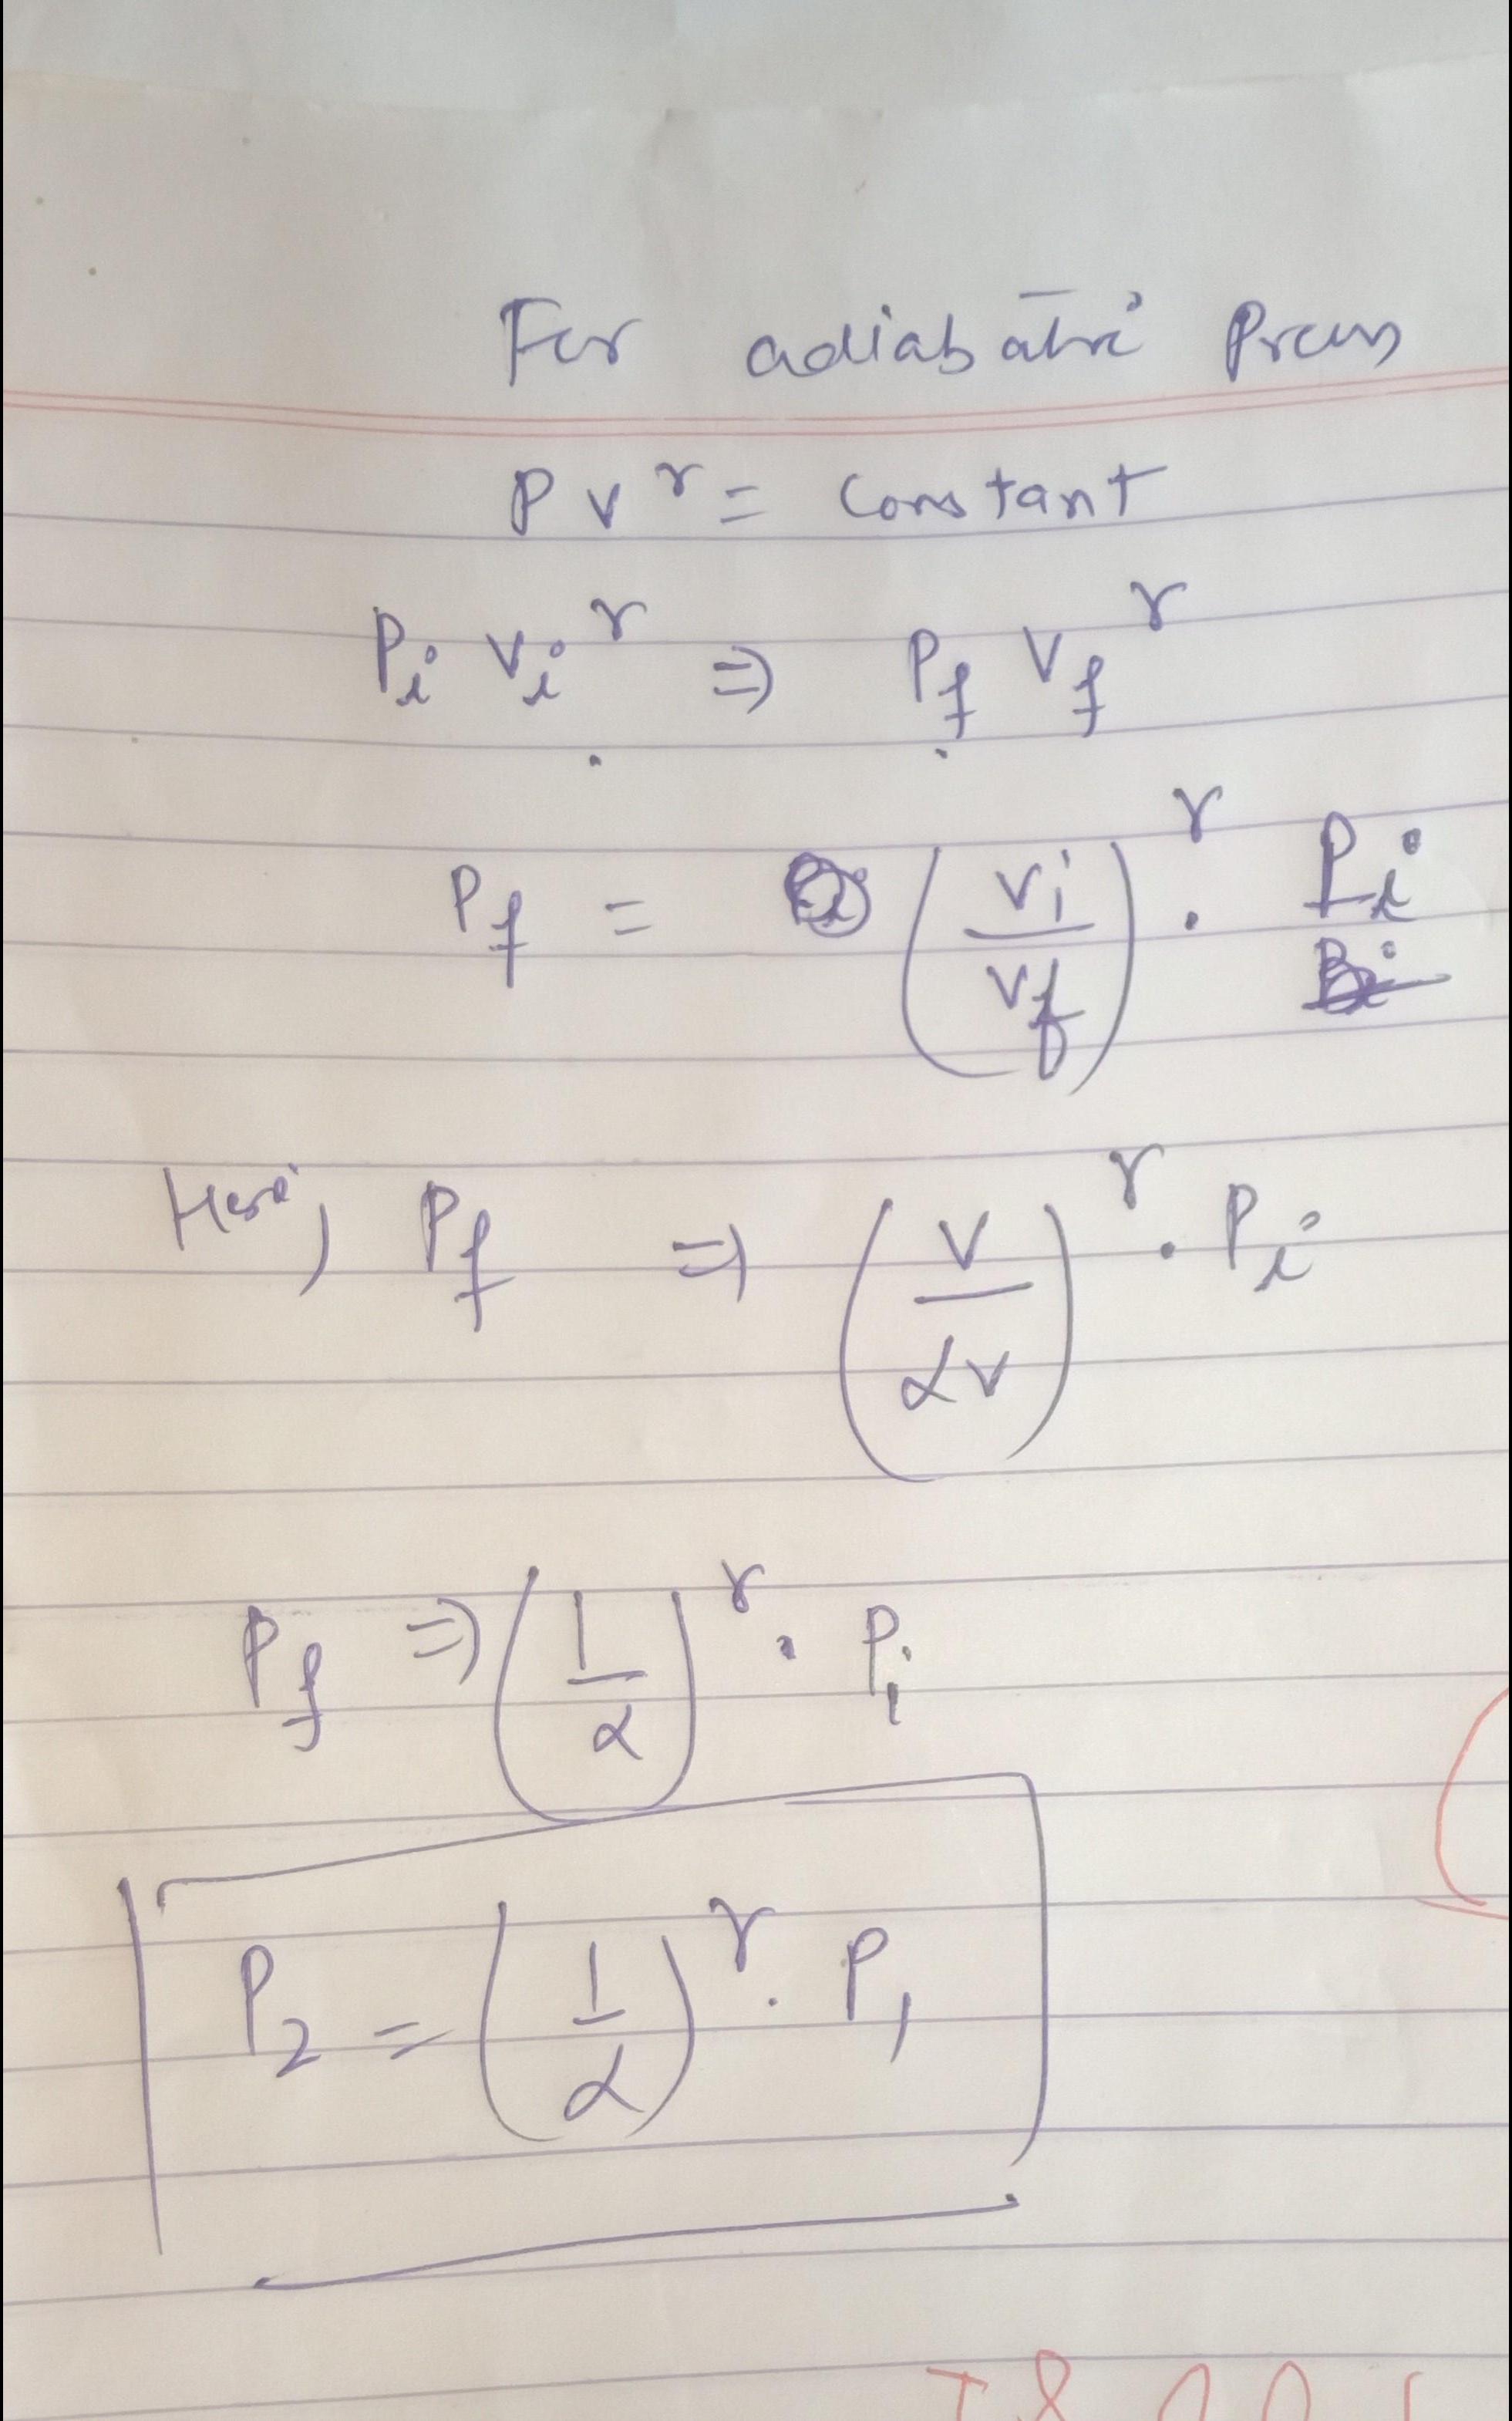 For adiabatic Process
P V^γ = Constant
P_i V_i^γ ⇒ P_f V_f^γ
P_f = (V_i / V_f)^γ . P_i
Here, P_f ⇒ (V / αV)^γ . P_i
P_f ⇒ (1 / α)^γ . P_i
P_2 = (1 / α)^γ . P_1